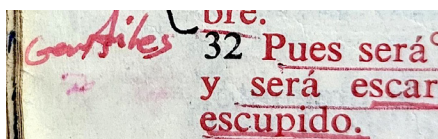 bre.
Gentiles 32 Pues será
y será escar
escupido.